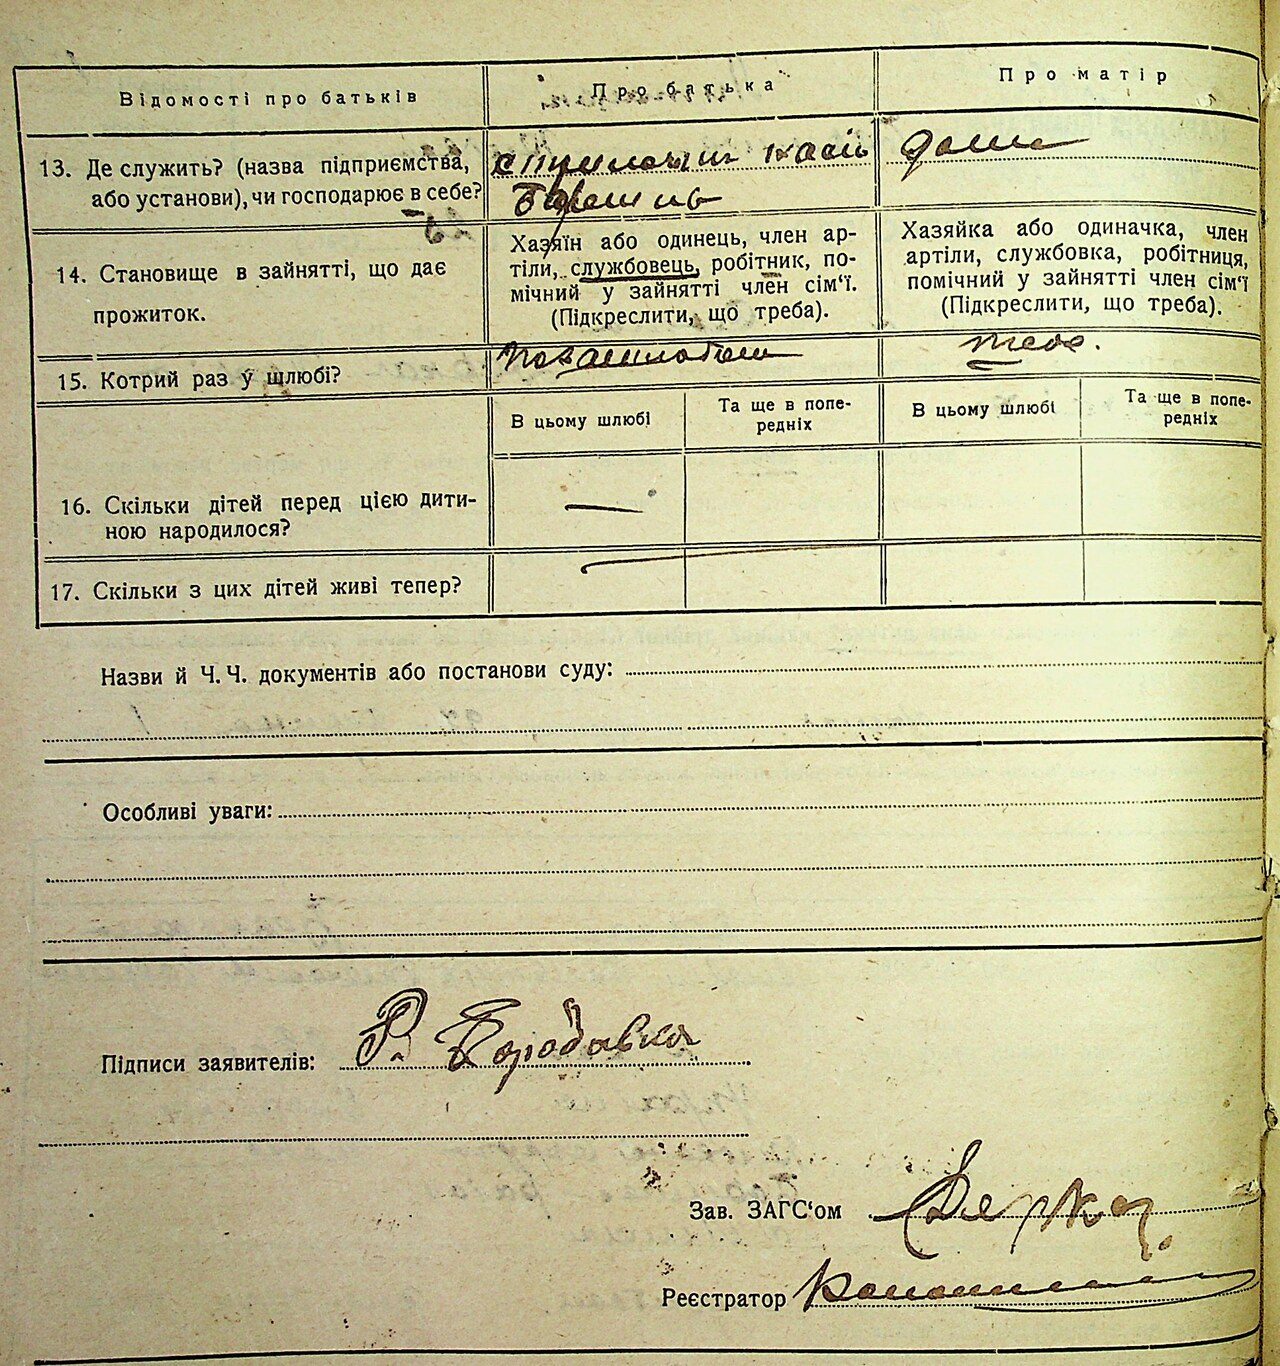 Відомості про батьків
Про батька
Про матір
13. Де служить? (назва підприємства, або установи), чи господарює в себе?
дома
14. Становище в зайнятті, що дає прожиток.
Хазяїн або одинець, член ар-
тіли, службовець, робітник, по-
мічний у зайнятті член сім‘ї.
(Підкреслити, що треба).
Хазяйка або одиначка, член
артіли, службовка, робітниця,
помічний у зайнятті член сім‘ї
(Підкреслити, що треба).
15. Котрий раз у шлюбі?
В цьому шлюбі
Та ще в попе-
редніх
В цьому шлюбі
Та ще в попе-
редніх
16. Скільки дітей перед цією дити-
ною народилося?
—
17. Скільки з цих дітей живі тепер?
Назви й Ч. Ч. документів або постанови суду:
Особливі уваги:
Підписи заявителів: Р. Бородавка
Зав. ЗАГС‘ом
Реєстратор